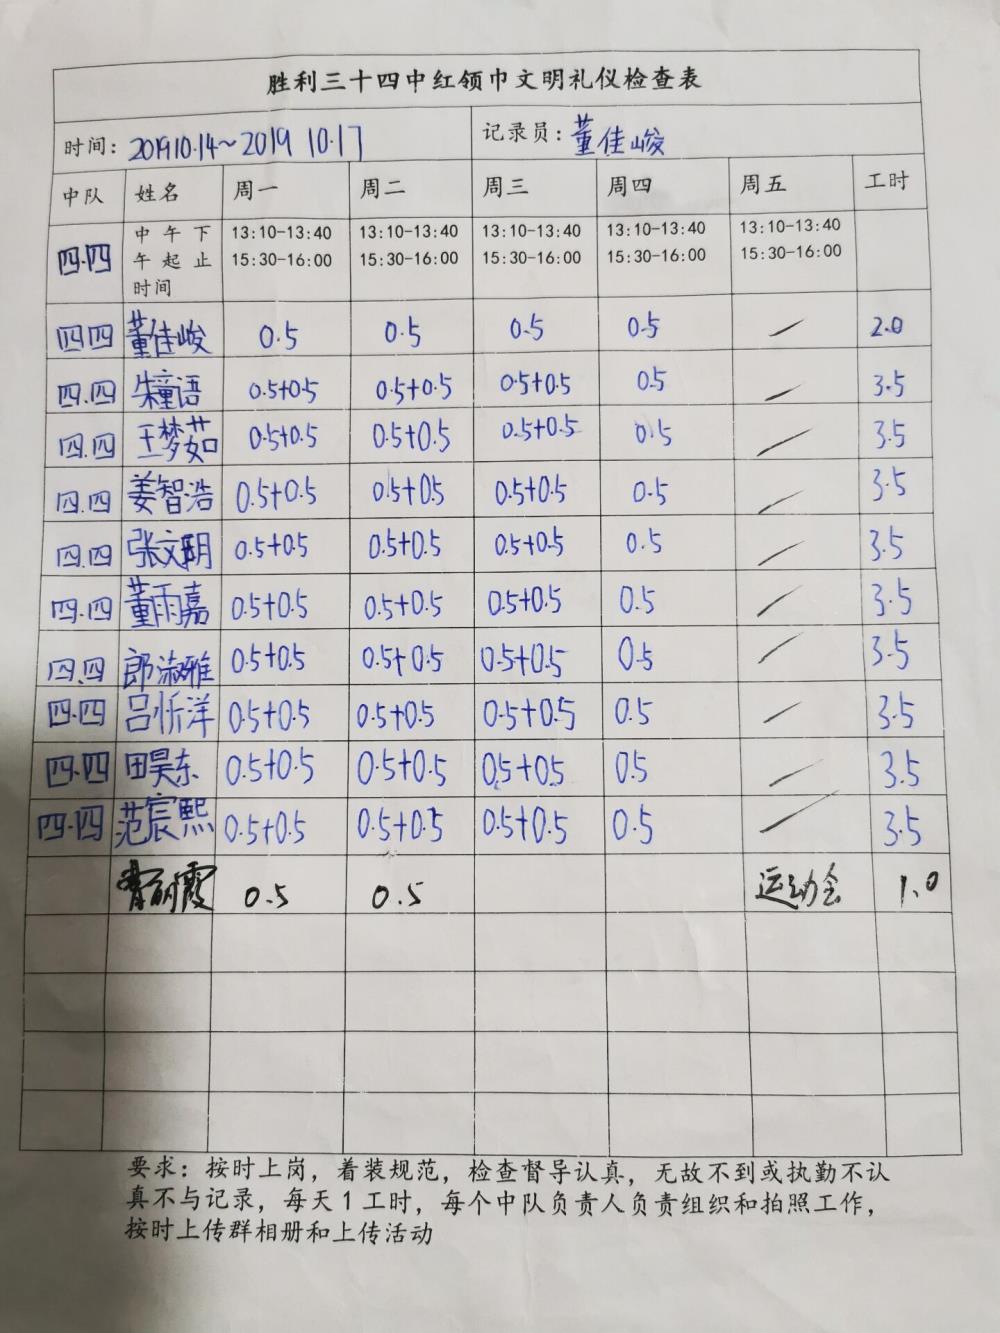 胜利三十四中红领巾文明礼仪检查表
时间：2019 10.14～2019 10.17 记录员：董佳峻
中队 姓名 周一 周二 周三 周四 周五 工时
四.四 中午下 13:10-13:40 13:10-13:40 13:10-13:40 13:10-13:40 13:10-13:40
午起止 15:30-16:00 15:30-16:00 15:30-16:00 15:30-16:00 15:30-16:00
时间
四四 董佳峻 0.5 0.5 0.5 0.5 / 2.0
四.四 朱童语 0.5+0.5 0.5+0.5 0.5+0.5 0.5 / 3.5
四.四 王梦茹 0.5+0.5 0.5+0.5 0.5+0.5 0.5 / 3.5
四.四 姜智浩 0.5+0.5 0.5+0.5 0.5+0.5 0.5 / 3.5
四.四 张文玥 0.5+0.5 0.5+0.5 0.5+0.5 0.5 / 3.5
四.四 董雨嘉 0.5+0.5 0.5+0.5 0.5+0.5 0.5 / 3.5
四.四 郎淑雅 0.5+0.5 0.5+0.5 0.5+0.5 0.5 / 3.5
四.四 吕忻洋 0.5+0.5 0.5+0.5 0.5+0.5 0.5 / 3.5
四.四 田昊东 0.5+0.5 0.5+0.5 0.5+0.5 0.5 / 3.5
四.四 范宸熙 0.5+0.5 0.5+0.5 0.5+0.5 0.5 / 3.5
0.5 0.5 运动会 1.0
要求：按时上岗，着装规范，检查督导认真，无故不到或执勤不认
真不与记录，每天1工时，每个中队负责人负责组织和拍照工作，
按时上传群相册和上传活动